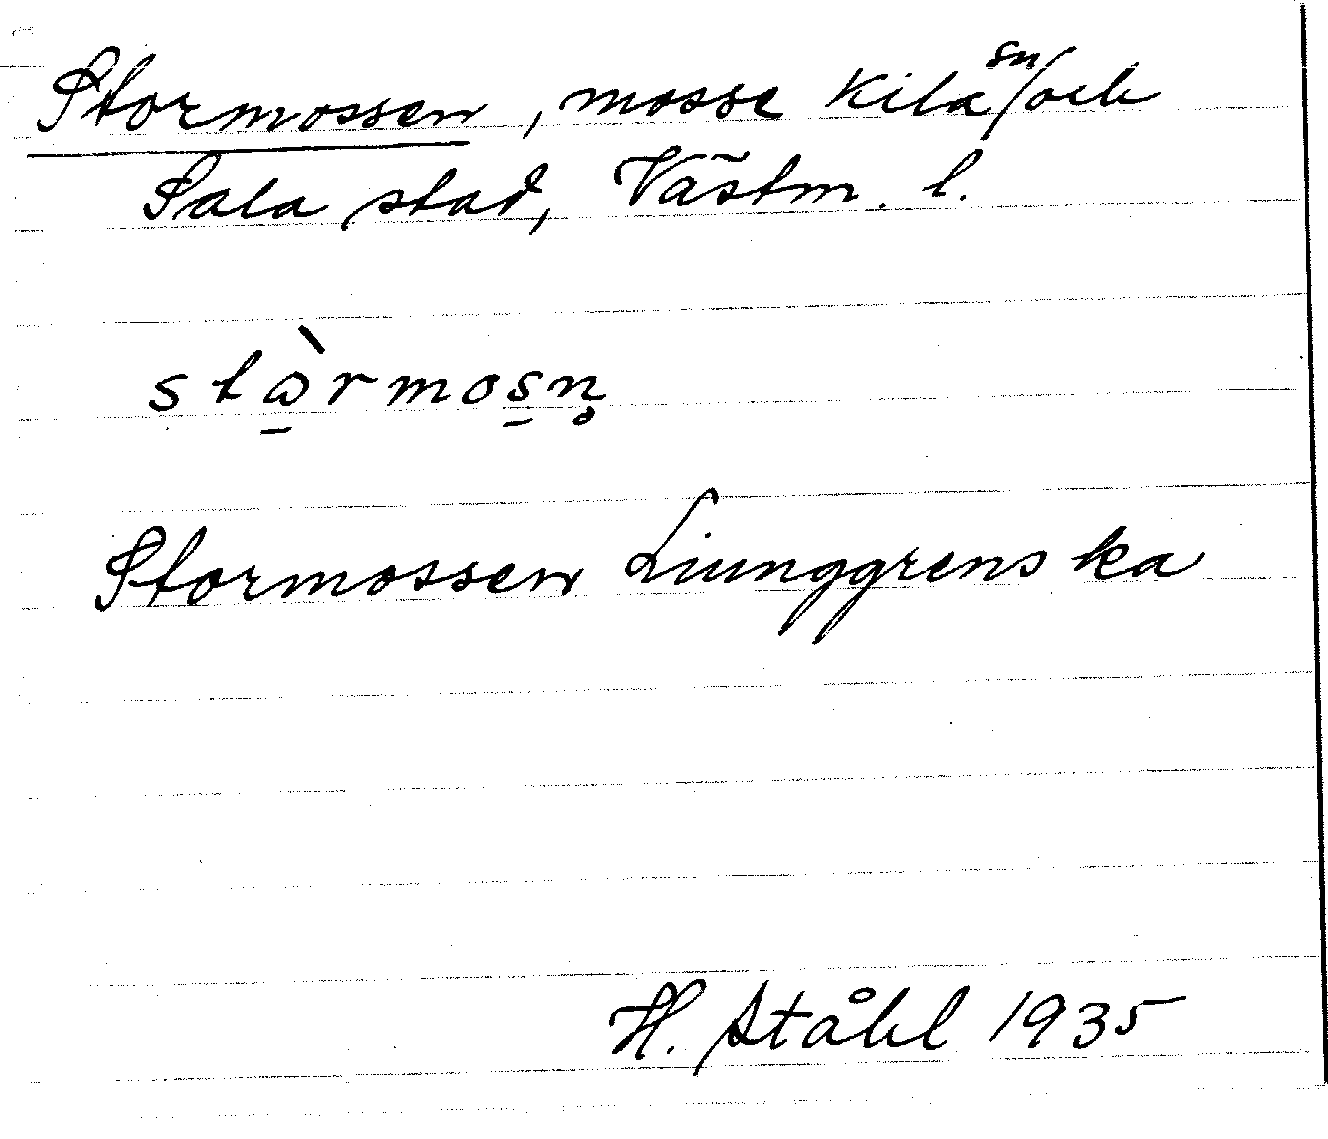 Stormossen, mosse Kila sn/och
Sala stad, Västm. l.
stɷ̠̀rmos̠n̥
Stormossen Liunggrenska
H. Ståhl 1935